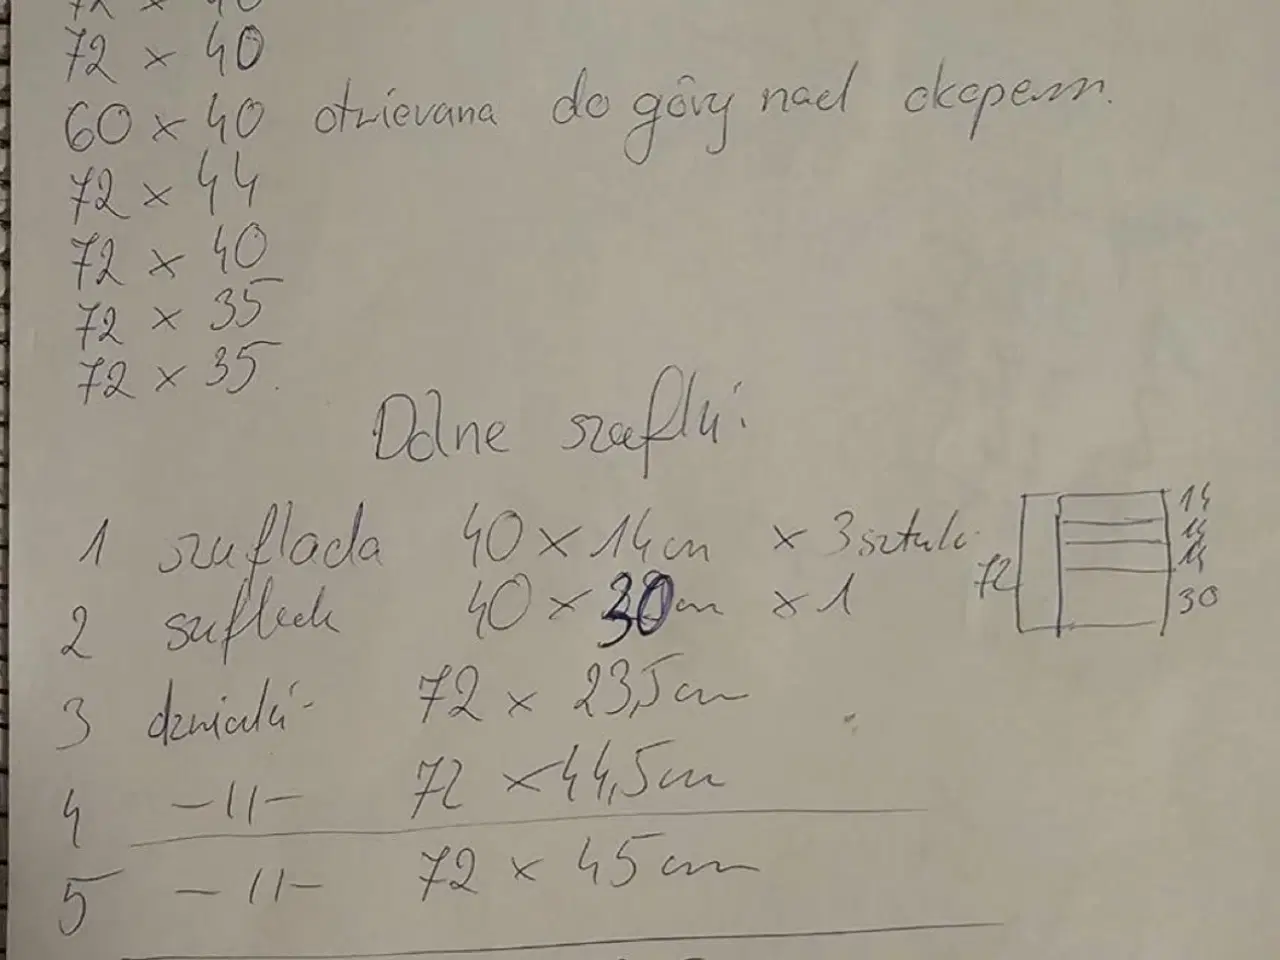 72 x 40
72 x 40
60 x 40 otwierana do góry nad okapem.
72 x 44
72 x 40
72 x 35
72 x 35.
Dolne szafki:
1 szuflada 40 x 14cm x 3 sztuki
2 szuflada 40 x 30cm x 1
3 drzwiczki - 72 x 23,5cm
4 -11- 72 x 44,5cm
5 -11- 72 x 45cm
72
14
14
14
30